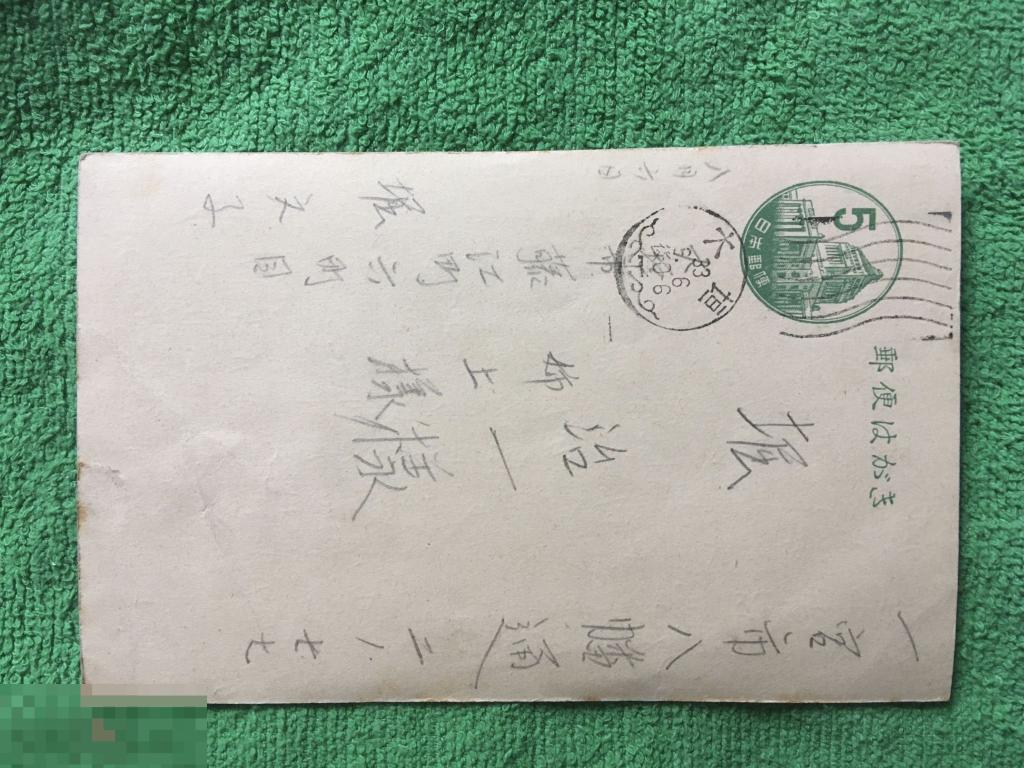 郵便はがき
5
日本郵便
大垣
33
8.6
後0-6
一宮市八幡通二ノ七七
堀治一様
姉上様
八月六日
市藤江町六町目
堀文子